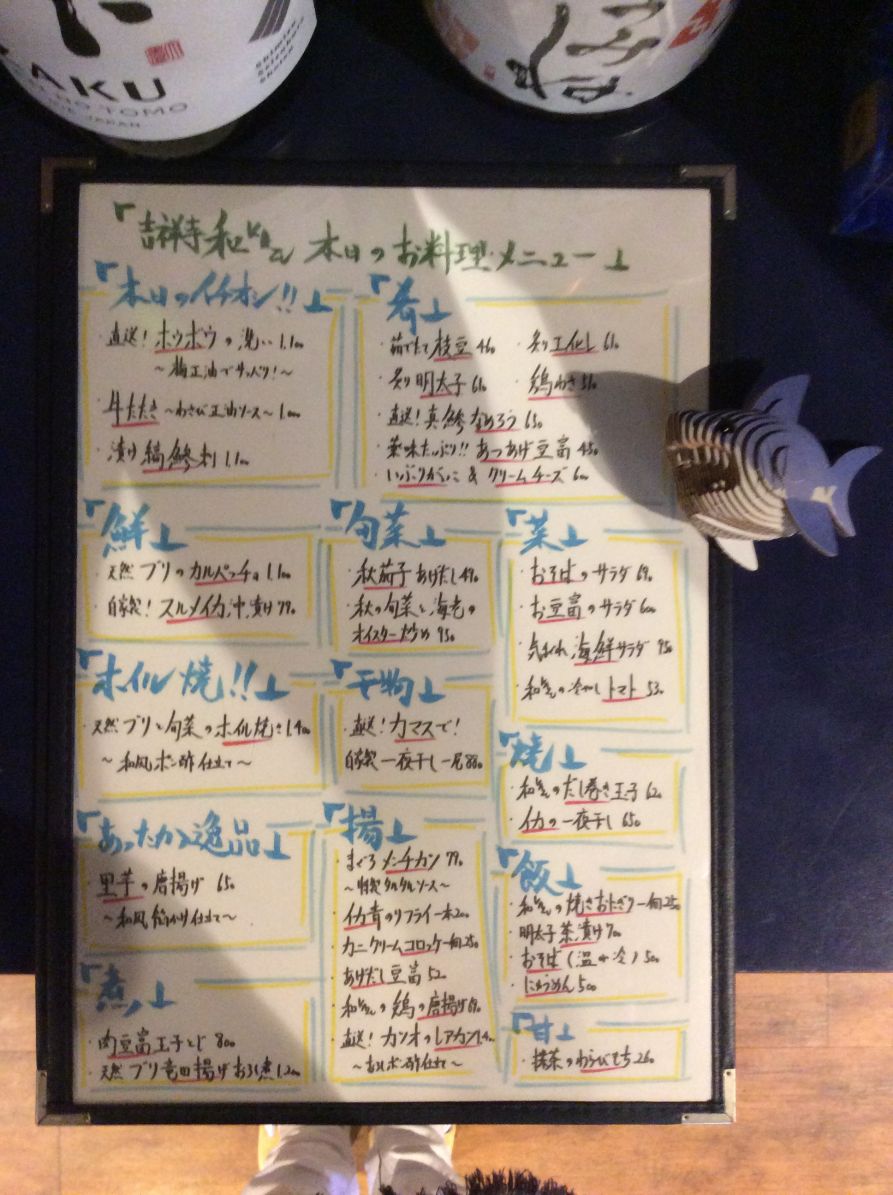 AKU
TOMO
JAPAN
「吉祥寺 和 本日のお料理メニュー」
「本日のイチオシ!!」
・直送!ホウボウの洗い 1.100
～梅正油でサッパリ!～
・牛たたき ～わさび正油ソース～ 1.000
・漬け縞鯵刺 1.100
「肴」
・茹でたて枝豆 460
・炙り明太子 610
・鶏わさ
・直送!真鯵なめろう 650
・薬味たっぷり!!あつあげ豆富 450
・いぶりがっこ&クリームチーズ 600
「鮮」
・天然ブリのカルパッチョ 1.100
・自家製!スルメイカ沖漬け 790
「旬菜」
・秋茄子あげだし 490
・秋の旬菜と海老の
オイスター炒め 950
「菜」
・おそばのサラダ 690
・お豆富のサラダ 600
・気まぐれ海鮮サラダ 950
・和の冷やしトマト 530
「ホイル焼!!」
・天然ブリと旬菜のホイル焼き 1.400
～和風ポン酢仕立て～
「干物」
・直送!カマスで!
自家製一夜干し一尾 880
「焼」
・和のだし巻き玉子 620
・イカの一夜干し 650
「あったか逸品」
・里芋の唐揚げ 650
～和風餡かけ仕立て～
「揚」
・まぐろメンチカツ 790
～特製タルタルソース～
・イカ青のりフライ一本 200
・カニクリームコロッケ一個 250
・あげだし豆富 520
・和の鶏の唐揚げ 690
・直送!カツオのレアカツ 1.400
～おろしポン酢仕立て～
「飯」
・和の焼きおにぎり一個 250
・明太子茶漬け 700
・おそば(温or冷) 500
・にゅうめん 500
「煮」
・肉豆富玉子とじ 800
・天然ブリ竜田揚げおろし煮 1.200
「甘」
・抹茶のわらびもち 260